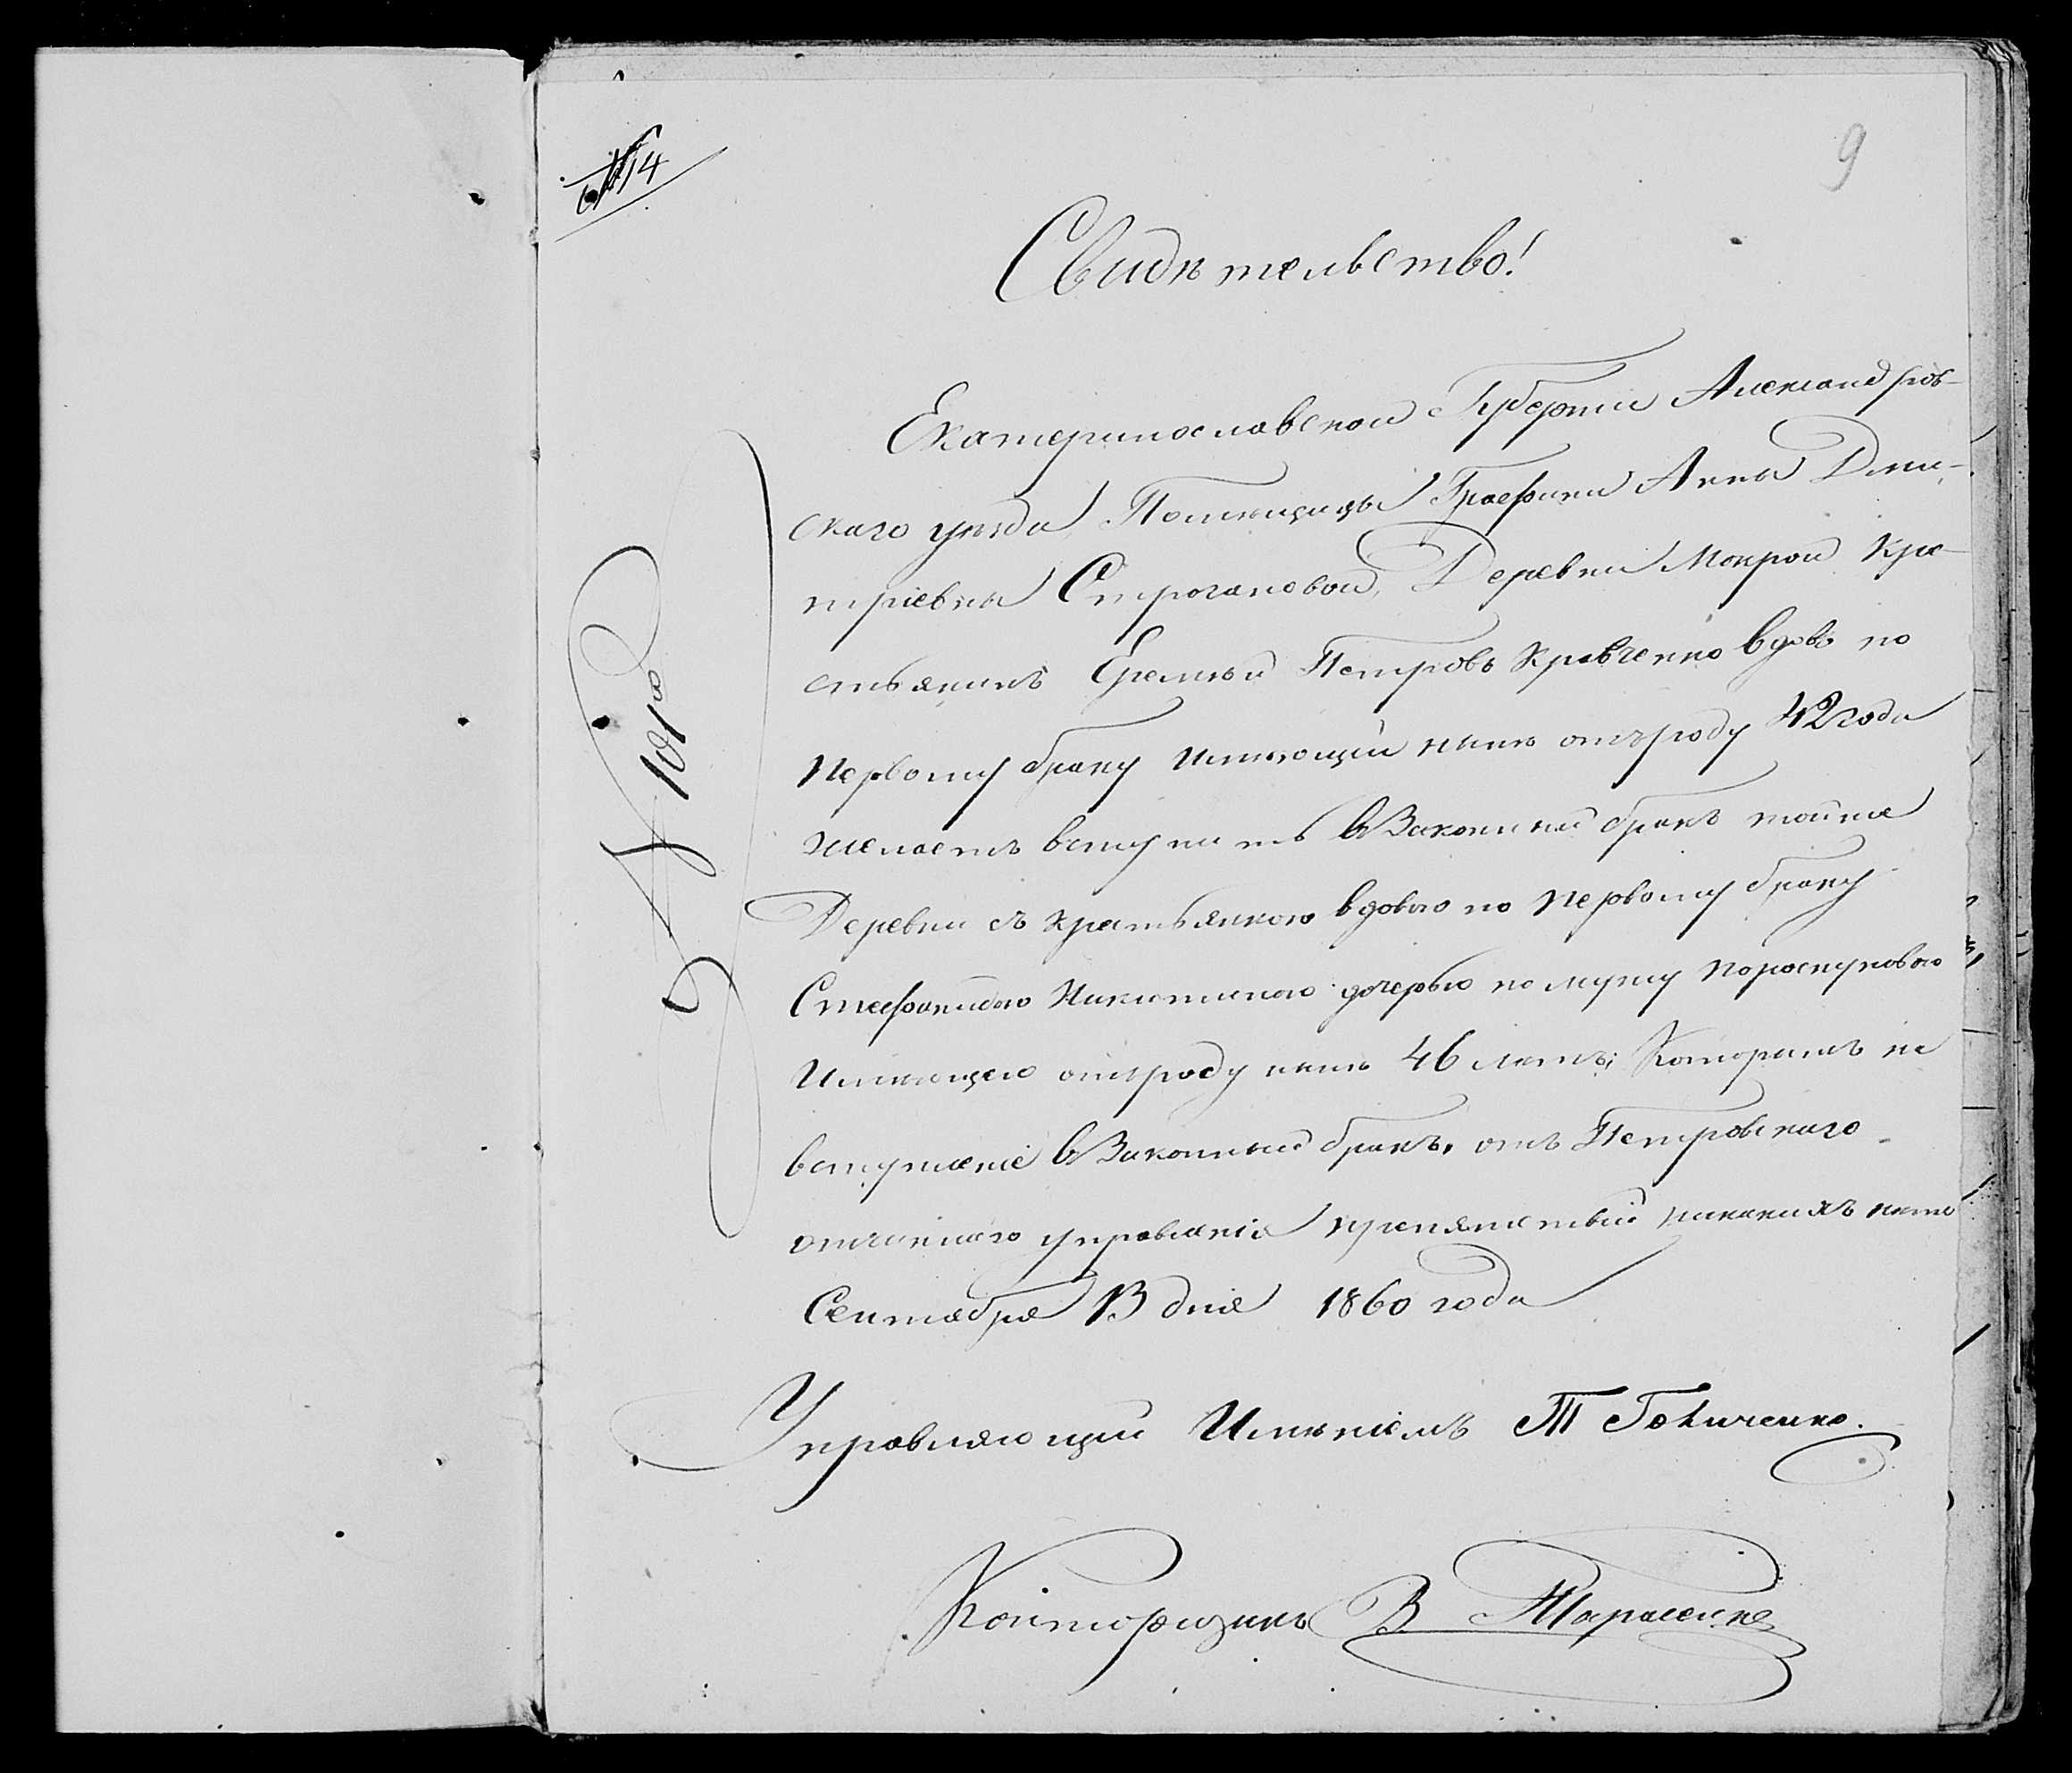 № 14
9
Свидѣтельство!
Екатеринославской Губерніи Александров-
скаго уѣзда, Помѣщицы Графини Анны Дми-
тріевны Строгановой, Деревни Мокрой Кре-
стьянинъ Еремѣй Петровъ Кравченко вдовъ по
Первому браку имѣющій нынѣ отъ роду 42 года
желаетъ вступить въ Законный бракъ тойже
Деревни съ крестьянкою вдовою по Первому браку
Стефанидою Никитиною дочерью по мужу
Имѣющею отъ роду нынѣ 46 летъ; Которымъ на
вступленіе въ Законный бракъ, отъ Петровскаго
вотчиннаго управленія препятствій никакихъ нетъ
Сентября 13 дня 1860 года
Управляющій Имѣніемъ Т
Конторщикъ В Тарасенко